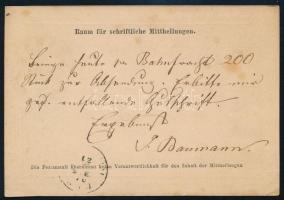 Raum für schriftliche Mittheilungen.
Bringe heute per Bahnfracht 200
Stück zur Absendung. Erbitte mir
gefl. entfallende Gutschrift.
Ergebenst
S. Baumann.
Die Postanstalt übernimmt keine Verantwortlichkeit für den Inhalt der Mittheilungen